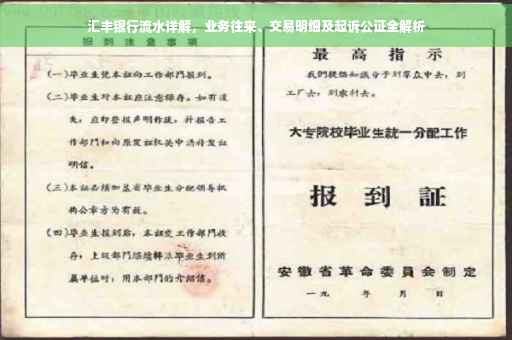 汇丰银行流水详解，业务往来、交易明细及起诉公证全解析
报到注意事项
(一)毕业生凭本证向工作部门报到。
(二)毕业生对本证应注意保存。如有遗
失，应即登报声明作废，并报告工
作部门和向原发证机关申请补发证
明信。
(三)本证必须加盖省毕业生分配领导机
构公章方为有效。
(四)毕业生报到后，本证交工作部门收
存；上级部门
单位时，用本部门的介绍信。
最高指示
我们提倡知识分子到群众中去，到
工厂去，到农村去。
大专院校毕业生統一分配工作
报到証
安徽省革命委員会制定
一九 年 月 日